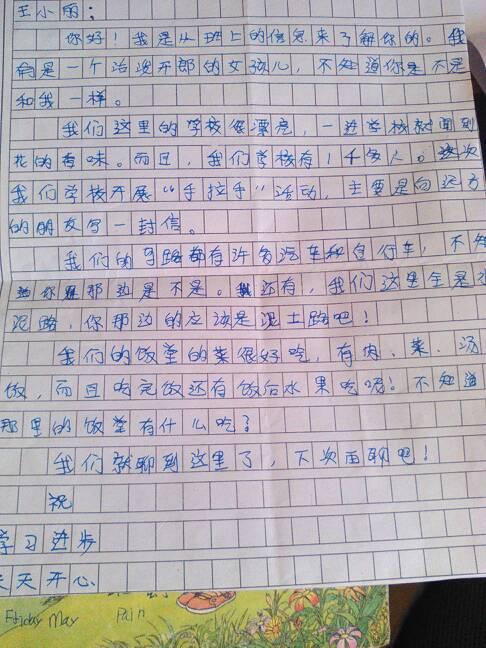 王小丽：
你好！我是从班上的信息来了解你的。我
俞是一个活泼开郎的女孩儿，不知道你是不是
和我一样。
我们这里的学校很漂亮，一进学校就闻到
花的香味。而且，我们学校有1千多人。这次
我们学校开展“手拉手”活动，主要是向远方
的朋友写一封信。
我们的马路都有许多汽车和自行车，不知
你那边是不是。还有，我们这里全是水
泥路，你那边的应该是泥土路吧！
我们的饭堂的菜很好吃，有肉、菜、汤
饭，而且吃完饭还有饭后水果吃呢！不知道
那里的饭堂有什么吃？
我们就聊到这里了，下次再聊吧！
祝
学习进步
天天开心
Friday May
Pain